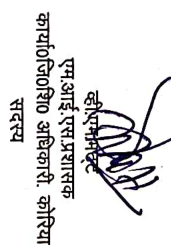 एम.आई.एस.प्रशासक
कार्या0जि0शि0 अधिकारी. कोरिया
सदस्य